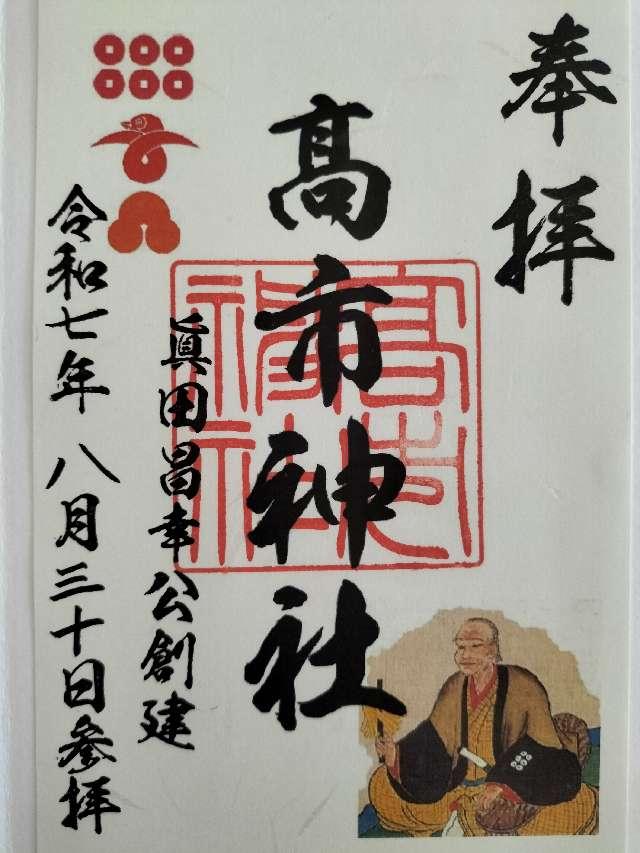 奉拝
髙市神社
眞田昌幸公創建
令和七年 八月三十日参拝